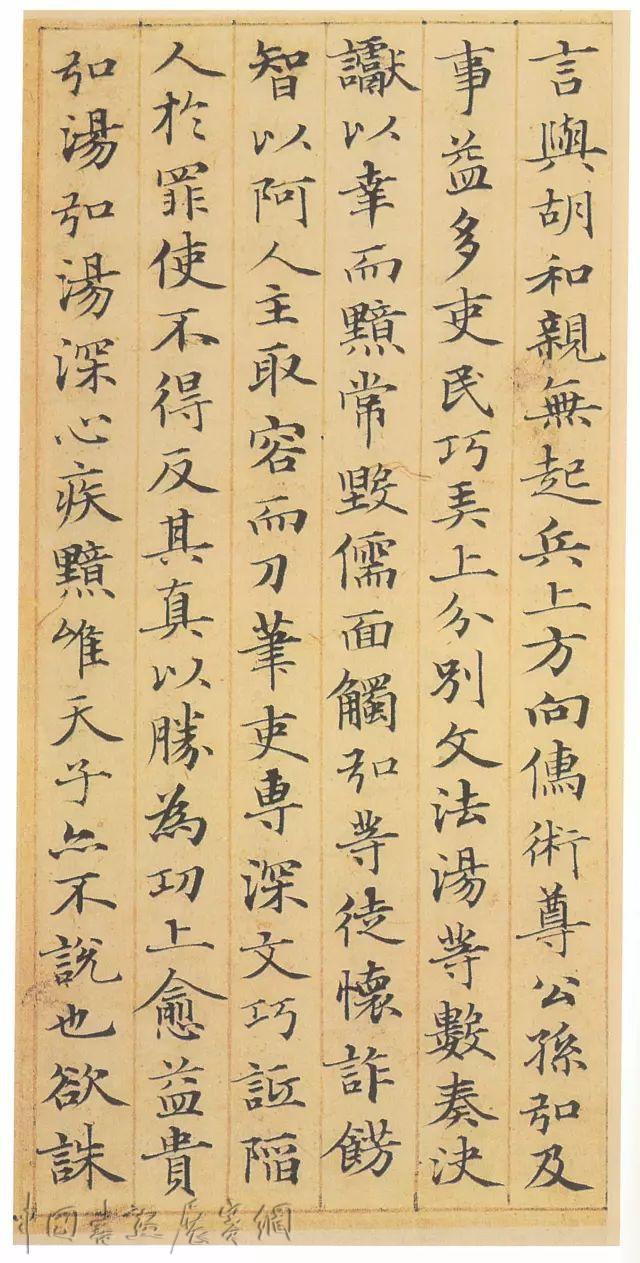 言與胡和親無起兵上方向儒術尊公孫弘及
事益多吏民巧弄上分別文法湯等數奏決
讞以幸而黯常毀儒面觸弘等徒懷詐飾
智以阿人主取容而刀筆吏專深文巧詆陷
人於罪使不得反其真以勝為功上愈益貴
弘湯弘湯深心疾黯唯天子亦不說也欲誅
中國書法展賽網